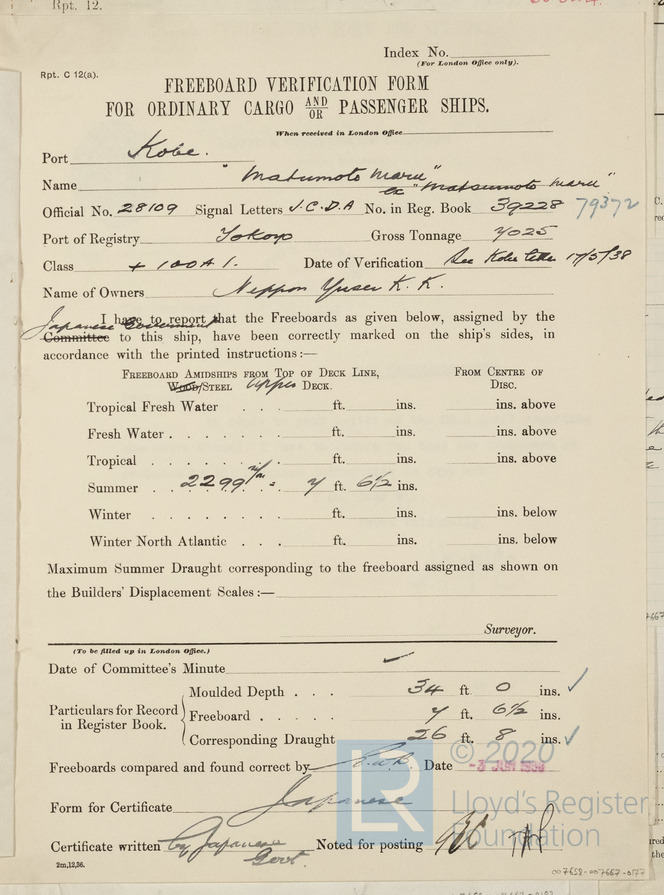 Rpt. 12.
Index No.
(For London Office only).
Rpt. C 12(a).
FREEBOARD VERIFICATION FORM
FOR ORDINARY CARGO AND/OR PASSENGER SHIPS.
When received in London Office
Port Kobe.
Name "Matumoto Maru"
ex "Matsumoto Maru"
Official No. 28109 Signal Letters J.C.D.A No. in Reg. Book 39228 79372
Port of Registry Tokyo Gross Tonnage 7025
Class + 100A1. Date of Verification See Kobe letter 17/5/38
Name of Owners Nippon Yusen K. K.
I have to report that the Freeboards as given below, assigned by the
Japanese Government
Committee to this ship, have been correctly marked on the ship's sides, in
accordance with the printed instructions :—
FREEBOARD AMIDSHIPS FROM TOP OF DECK LINE, FROM CENTRE OF
WOOD/STEEL Upper DECK. DISC.
Tropical Fresh Water . . . ft. ins. ins. above
Fresh Water . . . . . . ft. ins. ins. above
Tropical . . . . . . . ft. ins. ins. above
Summer . . 2299 m/m = 7 ft. 6½ ins.
Winter . . . . . . . ft. ins. ins. below
Winter North Atlantic . . . ft. ins. ins. below
Maximum Summer Draught corresponding to the freeboard assigned as shown on
the Builders' Displacement Scales :—
Surveyor.
(To be filled up in London Office.)
Date of Committee's Minute
Particulars for Record in Register Book.
Moulded Depth . . . 34 ft 0 ins.
Freeboard . . . . . 7 ft. 6½ ins.
Corresponding Draught 26 ft. 8 ins.
Freeboards compared and found correct by Date -3 JUN 1938
Form for Certificate Japanese
Certificate written by Japanese Govt. Noted for posting
2m,12,36.
© 2020
Lloyd's Register
Foundation
LR
007658-007667-0177